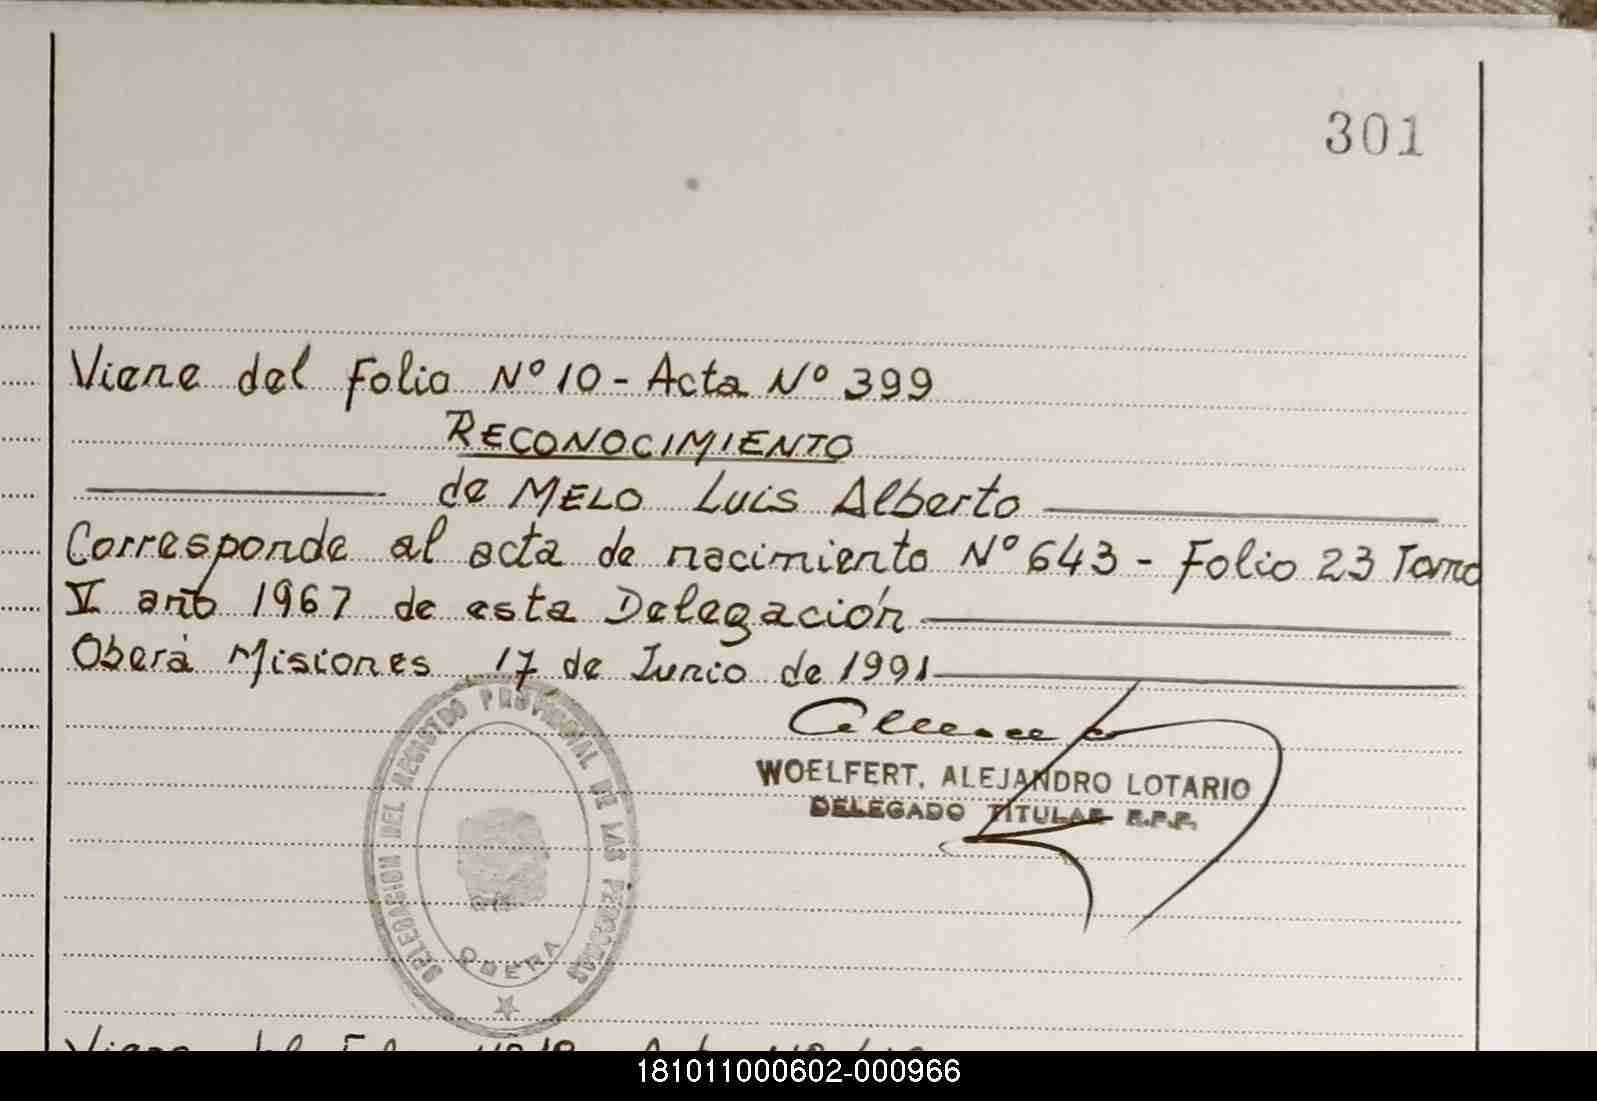 301
Viene del Folio Nº 10 - Acta Nº 399
RECONOCIMIENTO
de MELO Luis Alberto
Corresponde al acta de nacimiento Nº 643 - Folio 23 Tomo
V año 1967 de esta Delegación
Oberá Misiones 17 de Junio de 1991
WOELFERT, ALEJANDRO LOTARIO
DELEGADO TITULAR R.P.P.
DELEGACION DEL REGISTRO PROVINCIAL DE LAS PERSONAS
OBERA
Viene del Folio
181011000602-000966